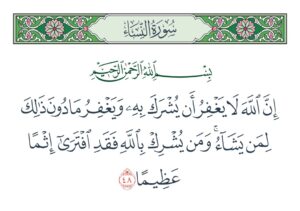 سُورَةُ النِّسَاءِ
بِسْمِ ٱللَّهِ ٱلرَّحْمَٰنِ ٱلرَّحِيمِ
إِنَّ ٱللَّهَ لَا يَغْفِرُ أَن يُشْرَكَ بِهِۦ وَيَغْفِرُ مَا دُونَ ذَٰلِكَ
لِمَن يَشَآءُ ۚ وَمَن يُشْرِكْ بِٱللَّهِ فَقَدِ ٱفْتَرَىٰٓ إِثْمًا
عَظِيمًا ٤٨